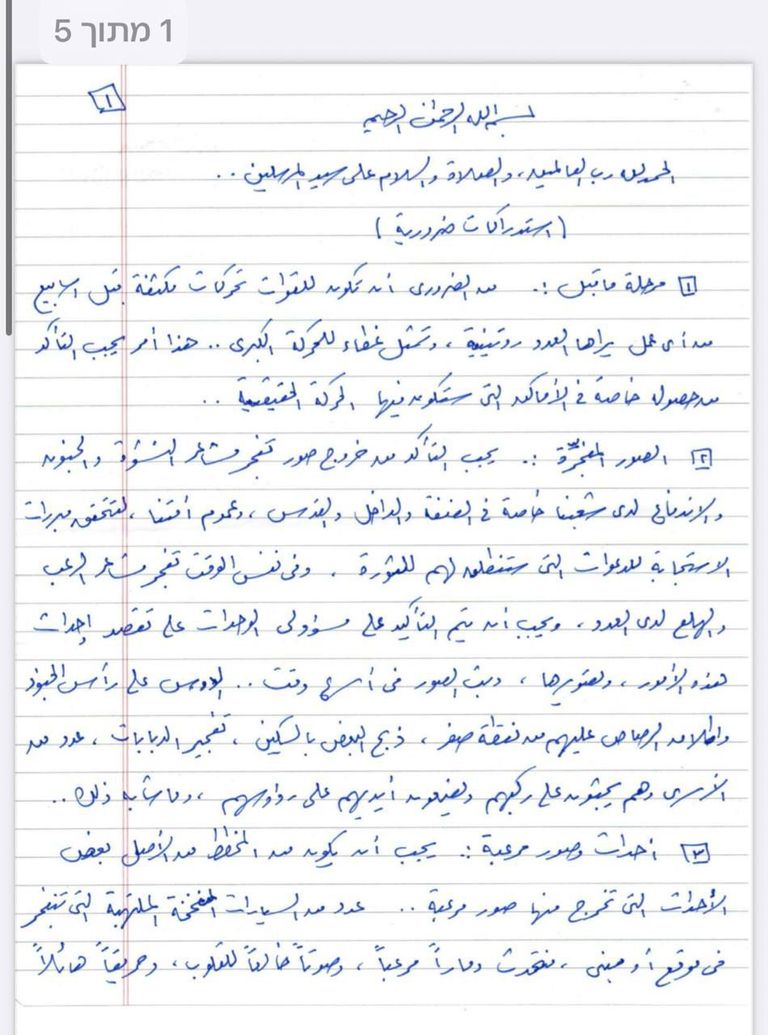 1 מתוך 5
١
بسم الله الرحمن الرحيم
الحمد لله رب العالمين، والصلاة والسلام على سيد المرسلين..
(استدراكات ضرورية)
١ مرحلة ما قبل :. من الضرورى أن تكون للقوات تحركات مكثفة قبل أسابيع
من أى عمل يراها العدو روتينية، وتمثل غطاء للحركة الكبرى.. هذا أمر يجب التأكد
من حصوله خاصة فى الأماكن التى ستكون فيها الحركة الحقيقية..
٢ الصور المفجِّرة :. يجب التأكد من خروج صور تفجر مشاعر النشوة والجنون
والاندفاع لدى شعبنا خاصة فى الضفة والداخل والقدس، وعموم أمتنا، لتتحقق مبررات
الاستجابة للدعوات التى ستنطلق لهم للثورة. وفى نفس الوقت تفجر مشاعر الرعب
والهلع لدى العدو، ويجب أن يتم التأكيد على مسؤولى الوحدات على تقصد إحداث
هذه الأمور، وتصويرها، وبث الصور فى أسرع وقت.. الدوس على رأس الجنود
وإطلاق الرصاص عليهم من نقطة صفر، ذبح البعض بالسكين، تفجير الدبابات، عدد من
الأسرى وهم يجثون على ركبهم ويضعون أيديهم على رؤوسهم، وما شابه ذلك..
٣ أحداث وصور مرعبة :. يجب أن يكون من المخطط من الأصل بعض
الأحداث التى تخرج منها صور مرعبة.. عدد من السيارات المفخخة الملتهبة التى تنفجر
فى موقع أو مبنى، فتحدث دماراً مرعباً، وصوتاً خالعاً للقلوب، وحريقاً هائلاً